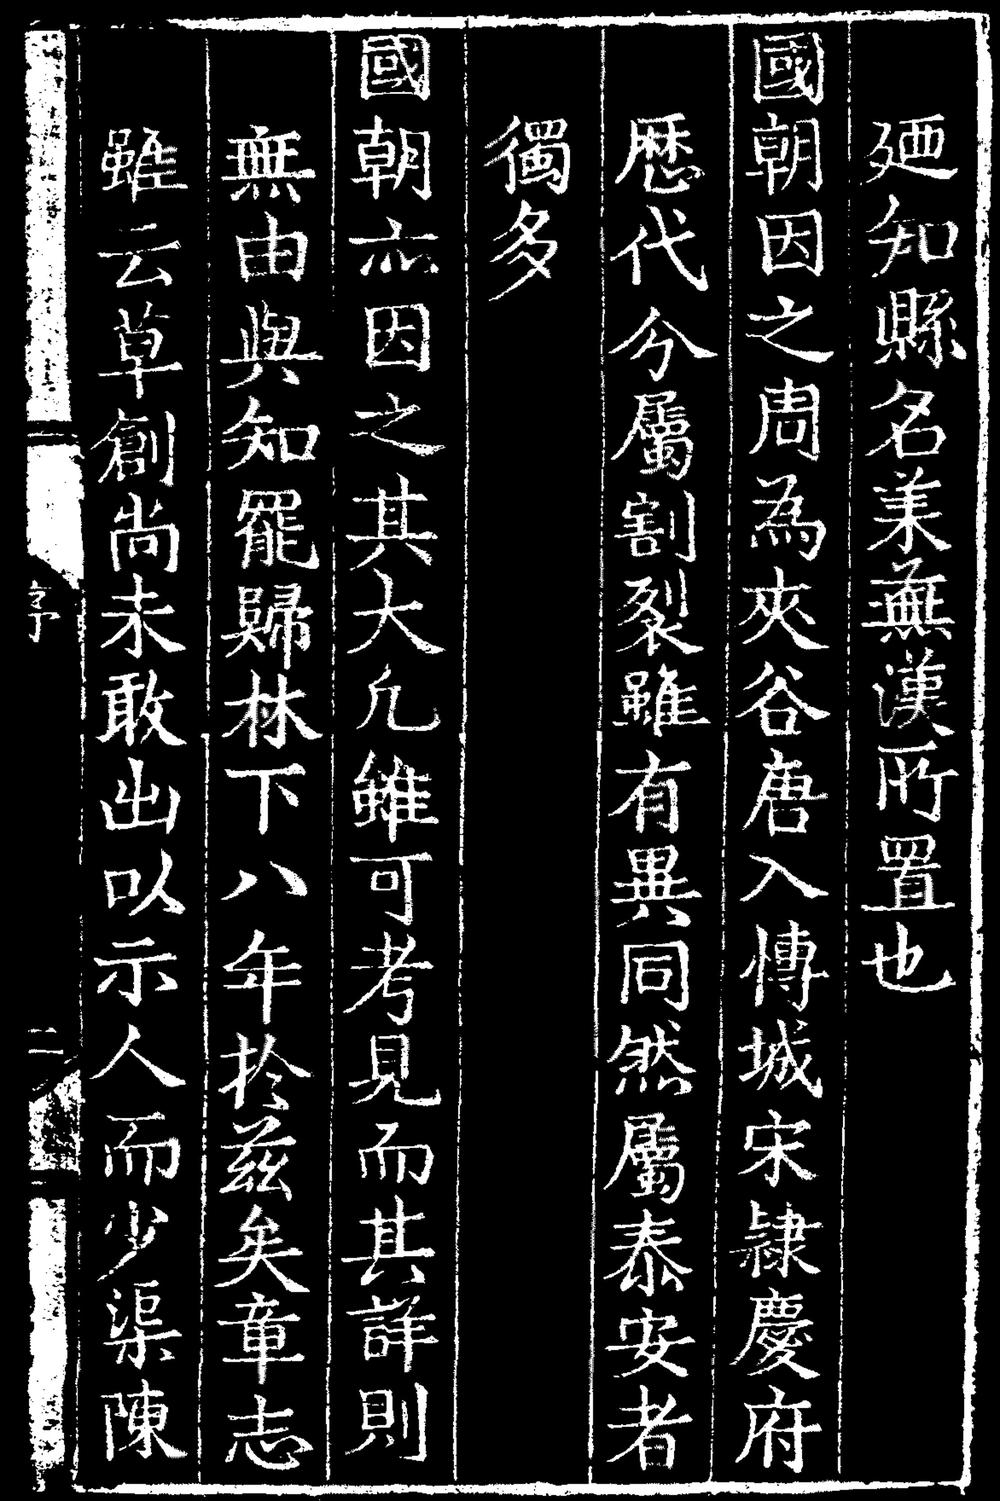 廼知縣名萊蕪漢所置也
國朝因之周為夾谷唐入博城宋隸慶府
歷代分屬割裂雖有異同然屬泰安者
獨多
國朝亦因之其大凡雖可考見而其詳則
無由與知罷歸林下八年於茲矣章志
雖云草創尚未敢出以示人而少渠陳
序
二